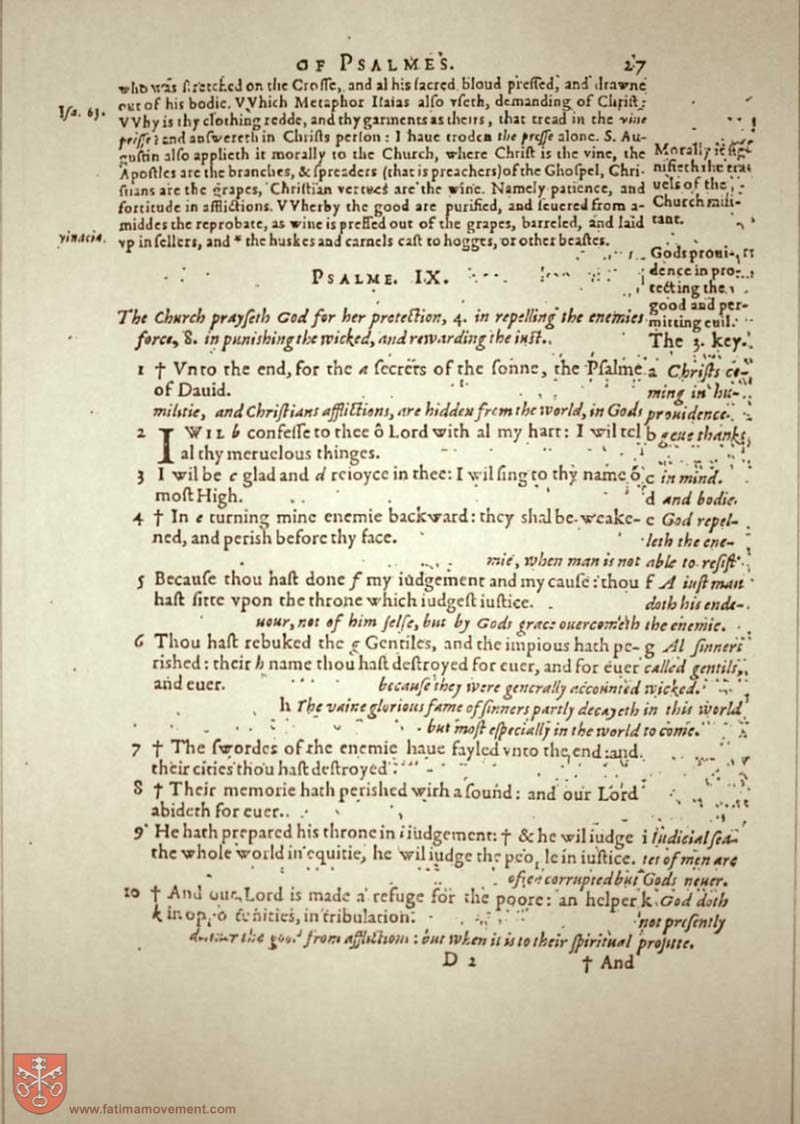 OF PSALMES.
27
who was stretched on the Crosse, and al his sacred bloud pressed, and drawne
out of his bodie. VVhich Metaphor Isaias also vseth, demanding of Christ:
Isa. 63.
VVhy is thy clothing redde, and thy garments as theirs, that tread in the vine
presse? and answereth in Christs person: I haue troden the presse alone. S. Au-
gustin also applieth it morally to the Church, where Christ is the vine, the
Apostles are the branches, & spreaders (that is preachers) of the Ghospel, Chri-
stians are the grapes, Christian vertues are the wine. Namely patience, and
fortitude in afflictions. VVherby the good are purified, and seuered from a-
middes the reprobate, as wine is pressed out of the grapes, barreled, and laid
vp in sellers, and * the huskes and carnels cast to hogges, or other beastes.
vinacia.
Morally it sig-
nifieth the tra-
uels of the
Church mili-
tant.
Gods proui-
dence in pro-
tecting the
good and per-
mitting euil.
The 3. key.
PSALME. IX.
The Church prayseth God for her protection, 4. in repelling the enemies
force, 8. in punishing the wicked, and rewarding the iust.
1 † Vnto the end, for the a secrets of the sonne, the Psalme a Christs co-
of Dauid. ming in hu-
militie, and Christians afflictions, are hidden from the world, in Gods prouidence.
2 I WIL b confesse to thee ô Lord with al my hart: I wil tel b geue thanks,
al thy meruelous thinges.
3 I wil be c glad and d reioyce in thee: I wil sing to thy name ô c in mind.
most High. d and bodie.
4 † In e turning mine enemie backward: they shal be weake- e God repel-
ned, and perish before thy face. leth the ene-
mie, when man is not able to resist.
5 Because thou hast done f my iudgement and my cause: thou f A iust man
hast sitte vpon the throne which iudgest iustice. doth his ende-
uour, not of him selfe, but by Gods grace ouercometh the enemie.
6 Thou hast rebuked the g Gentiles, and the impious hath pe- g Al sinners
rished: their h name thou hast destroyed for euer, and for euer called gentils,
and euer. because they were generally accounted wicked.
h The vaine glorious fame of sinners partly decayeth in this world
but most especially in the world to come.
7 † The swordes of the enemie haue fayled vnto the end: and
their cities thou hast destroyed.
8 † Their memorie hath perished with a sound: and our Lord
abideth for euer.
9 He hath prepared his throne in i iudgement: † & he wil iudge i Iudicial sea-
the whole world in equitie, he wil iudge the people in iustice. tes of men are
often corrupted but Gods neuer.
10 † And our Lord is made a refuge for the poore: an helper k God doth
k in oportunities, in tribulation. not presently
deliuer the good from afflictions: but when it is to their spiritual profite.
D 2
† And
www.fatimamovement.com